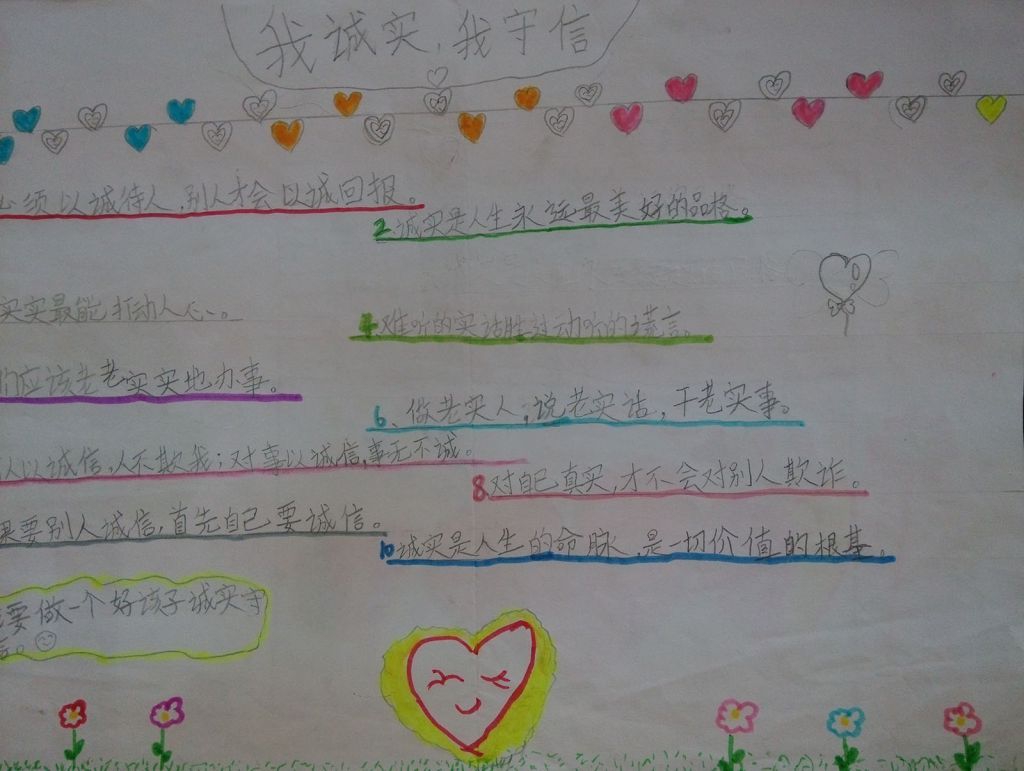 我诚实,我守信
须以诚待人,别人才会以诚回报。
2.诚实是人生永远最美好的品格。
实实最能打动人心。
4.难听的实话胜过动听的谎言。
们应该老老实实地办事。
6、做老实人,说老实话,干老实事。
人以诚信,人不欺我;对事以诚信,事无不诚。
8.对自己真实,才不会对别人欺诈。
果要别人诚信,首先自己要诚信。
10诚实是人生的命脉,是一切价值的根基。
要做一个好该子诚实守
信。